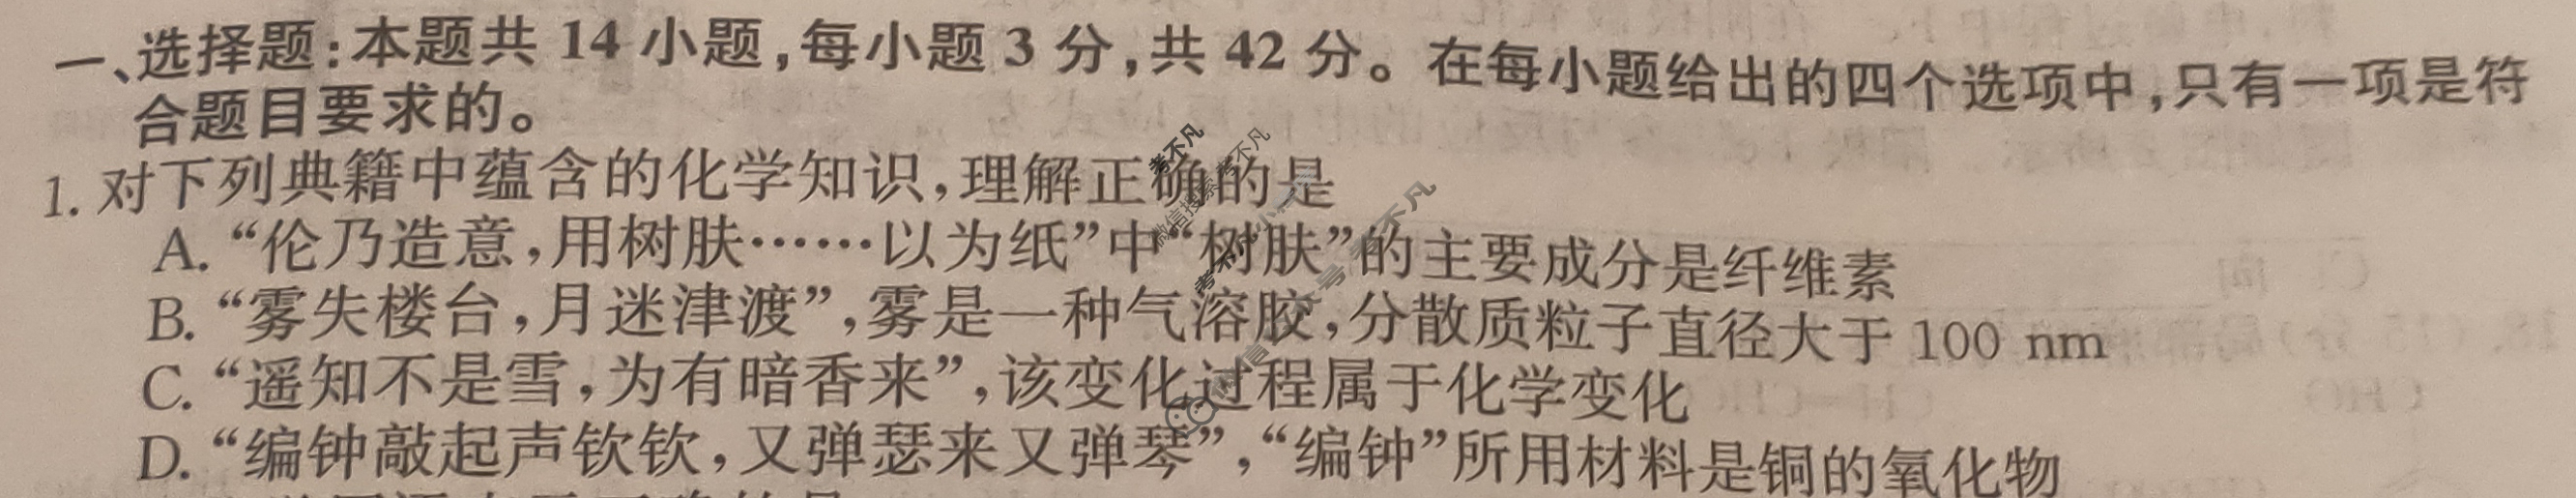 一、选择题:本题共 14 小题,每小题 3 分,共 42 分。在每小题给出的四个选项中,只有一项是符
合题目要求的。
1. 对下列典籍中蕴含的化学知识,理解正确的是
A. “伦乃造意,用树肤……以为纸”中“树肤”的主要成分是纤维素
B. “雾失楼台,月迷津渡”,雾是一种气溶胶,分散质粒子直径大于 100 nm
C. “遥知不是雪,为有暗香来”,该变化过程属于化学变化
D. “编钟敲起声钦钦,又弹瑟来又弹琴”,“编钟”所用材料是铜的氧化物
考不凡
考不凡
微信搜索
考不凡